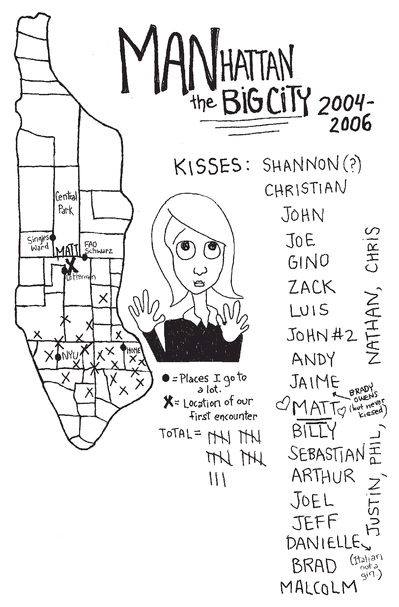 MANHATTAN
the BIG CITY 2004-
2006
KISSES: SHANNON(?)
CHRISTIAN
JOHN
JOE
GINO
ZACK
LUIS
JOHN #2
ANDY
JAIME
MATT
BRADY
OWENS
(but never
kissed)
BILLY
SEBASTIAN
ARTHUR
JOEL
JEFF
DANIELLE
(Italian,
not a
girl.)
BRAD
MALCOLM
JUSTIN, PHIL, NATHAN, CHRIS
Central
Park
Singles
Ward
MATT
FAO
Schwarz
X
NYU
HOME
● = Places I go to
a lot.
X = Location of our
first encounter
TOTAL =